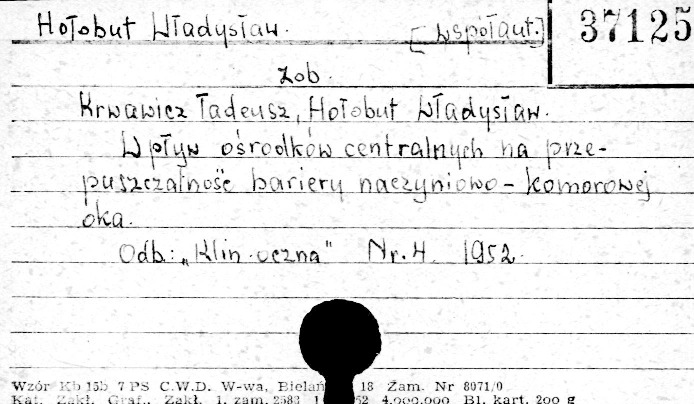 Hołobut Władysław. [współaut.] 37125
zob.
Krwawicz Tadeusz, Hołobut Władysław.
Wpływ ośrodków centralnych na prze-
puszczalność bariery naczyniowo-komorowej
oka.
Odb.: „Klin. oczna" Nr. 4. 1952.
Wzór Kb 15b 7 PS C.W.D. W-wa, 18 Zam. Nr 8071/0
Kat. Zakł. Graf., Zakł. 1. zam. 2583 4.000.000 Bl. kart. 200 g